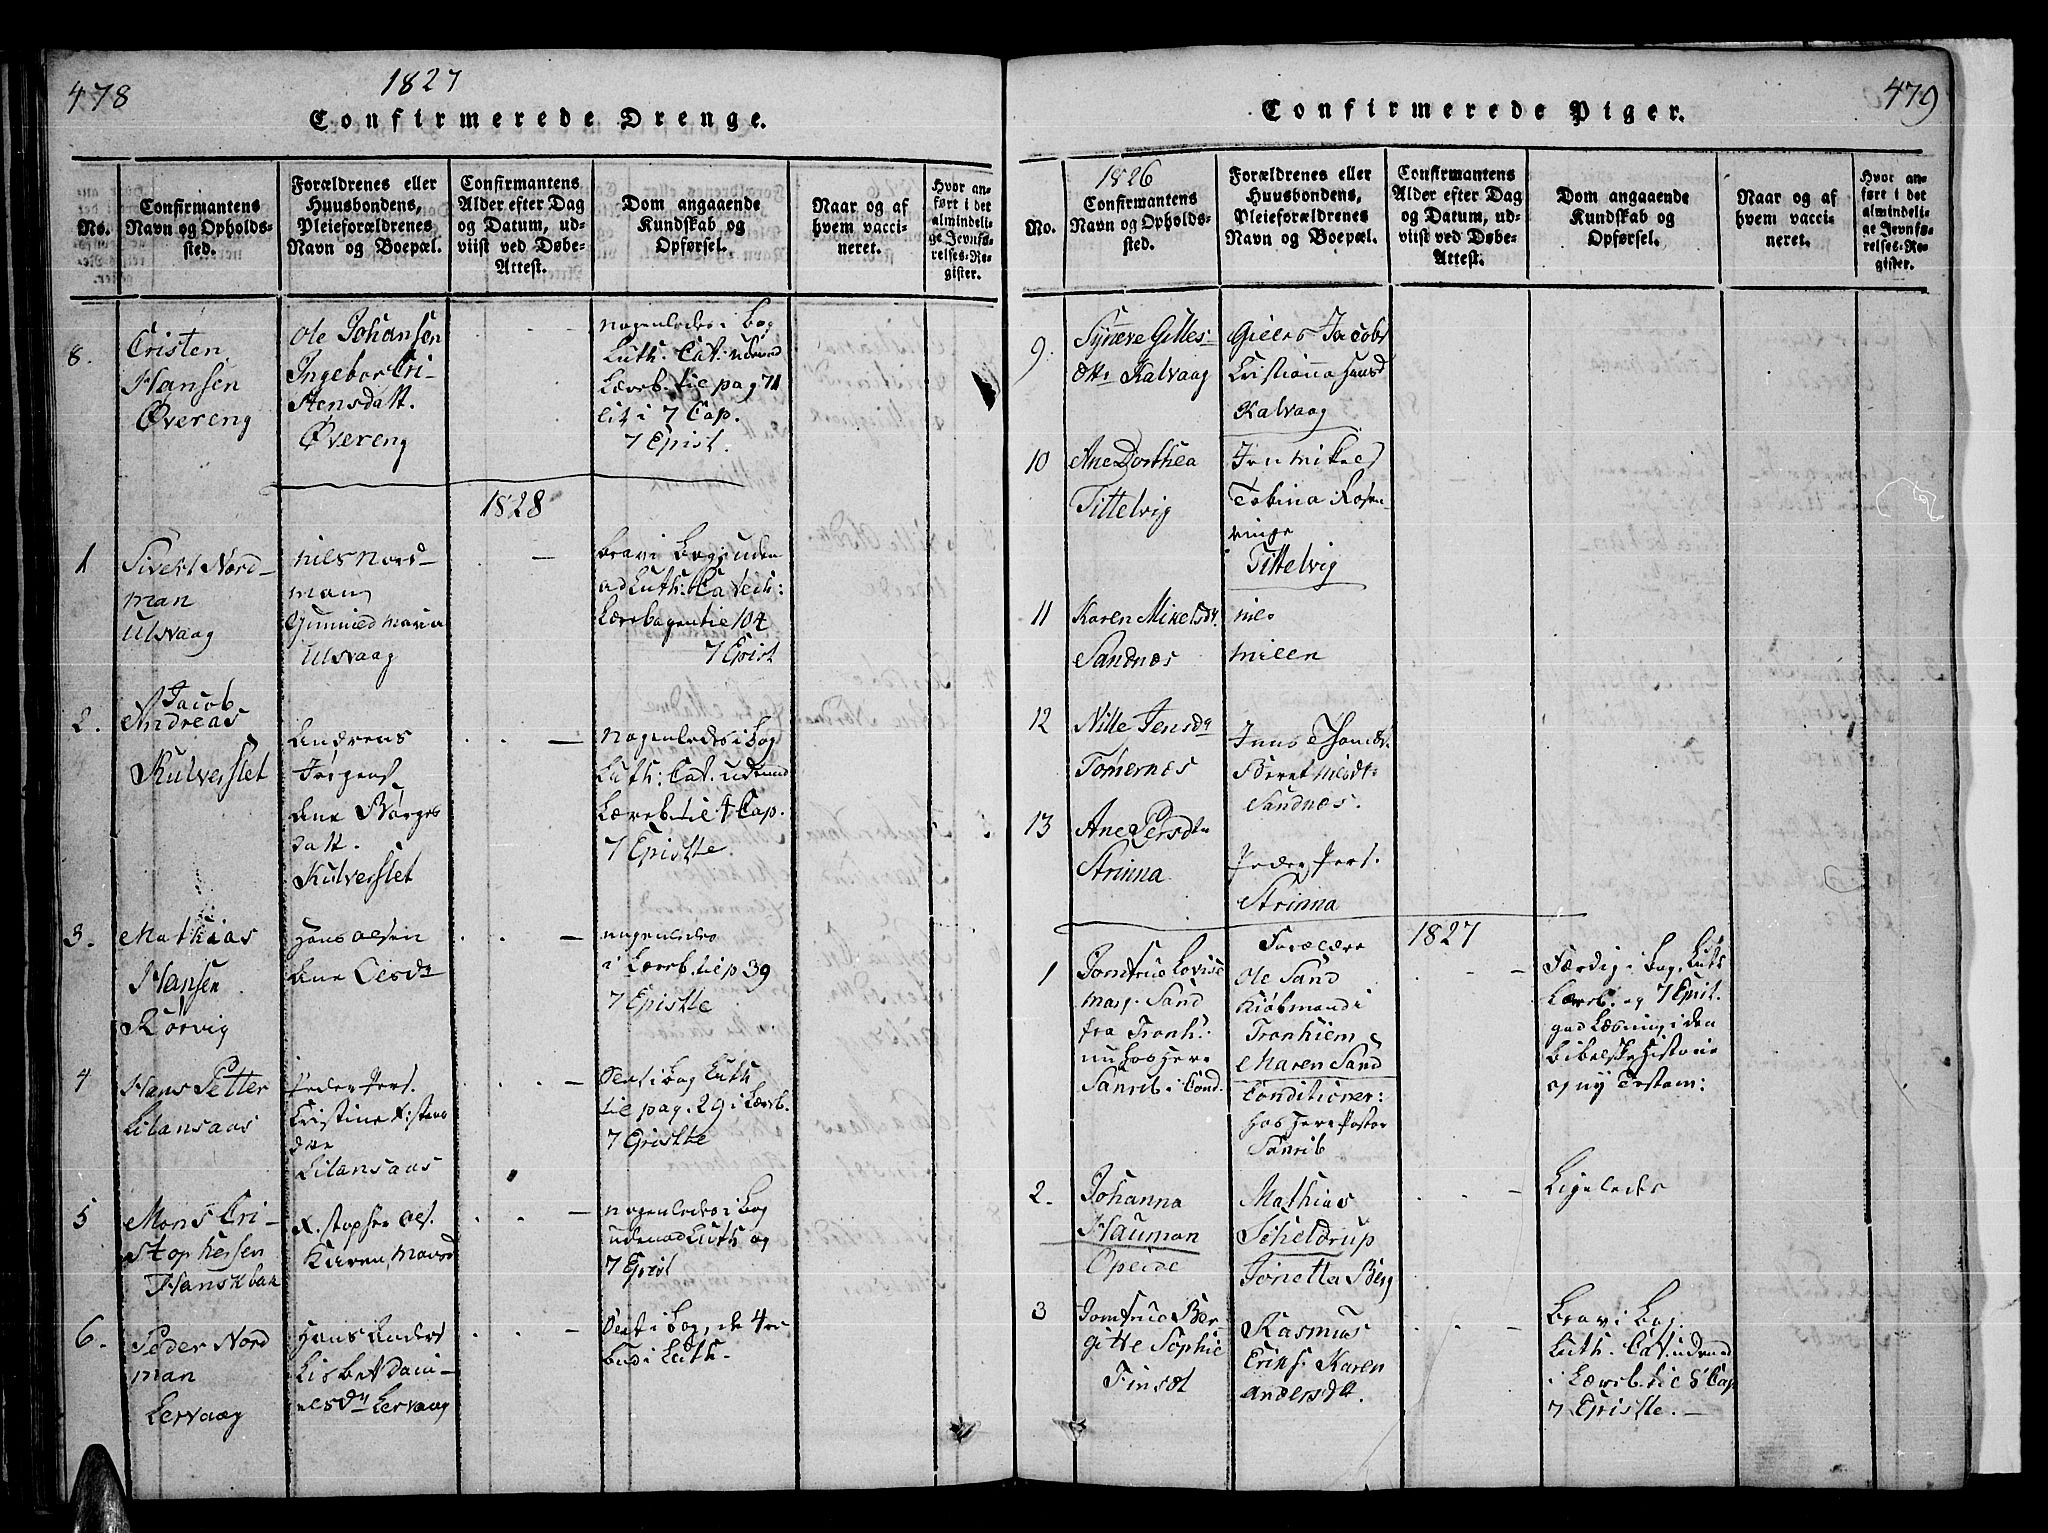 478
1827
Confirmerede Drenge.
No.
Confirmantens
Navn og Opholds-
sted.
Forældrenes eller
Huusbondens,
Pleieforældrenes
Navn og Boepæl.
Confirmantens
Alder efter Dag
og Datum, ud-
viist ved Døbe-
Attest.
Dom angaaende
Kundskab og
Opførsel.
Naar og af
hvem vacci-
neret.
Hvor an-
ført i det
almindeli-
ge Jevnfø-
relses-Re-
gister.
8.
Cristen
Hansen
Øvereng
Ole Johansen
Ingebor Cri-
stensdatt.
Øvereng
nogenledes i Bog
Luth. Cat. udenad
Læreb. til pag 71
lit i 7 Cap.
7 Epist.
1828
1
Sivert Nord-
man
Ulsvaag
Niels Nord-
man
Gunnild Maria
Ulsvaag
brav i Bog; uden
ad Luth: Catech:
Lærebogen til 104
7 Epist
2.
Jacob
Andreas
Kulverslet
Andreas
Jørgens
Ane Børges
datt.
Kulverslet
Nogenledes i Bog
Luth: Cat. udenad
Læreb. til 4 Cap.
7 Epistle
3.
Mathias
Hansen
Rørvig
Hans Olsen
Ane Olsdr
nogenledes
i Læreb. til p 39
7 Epistle
4
Hans Petter
Lilansaas
Peder Pers.
Cristine
Lilansaas
Slet i Bog Luth
til pag. 29 i Læreb.
7 Epistle
5
Mons Cri-
stophersen
Hanskbak
Kristopher Ols.
Karen Monsd
nogenledes i Bog
udenad Luth og
7 Epist
6.
Peder Nord
man
Lervaag
Hans Anders
Lisbet Dani-
elsdr Lervaag
Slet i Bog, de 4re
bud i Luth.
479
Confirmerede Piger.
No.
1826
Confirmantens
Navn og Opholds-
sted.
Forældrenes eller
Huusbondens,
Pleieforældrenes
Navn og Boepæl.
Confirmantens
Alder efter Dag
og Datum, ud-
viist ved Døbe-
Attest.
Dom angaaende
Kundskab og
Opførsel.
Naar og af
hvem vacci-
neret.
Hvor an-
ført i det
almindeli-
ge Jevnfø-
relses-Re-
gister.
9.
Synøve Gilles-
dtr Kalvaag
Jacobs
Cristianna Hansd
Kalvaag
10
Ane Dorthea
Tittelvig
Jen Mikels
Tobina Rosen
vinge
Tittelvig
11
Karen Mikelsdr.
Sandnæs
Niels
Milen
12
Nille Jensdr
Tømernes
Jens
Beret Nilsdt:
Sandnæs.
13
Ane Persdtr
Strinna
Peder Pers.
Strinna
1827
1
Jomfrue Lovise
Marg. Sand
fra Tronh:
nu hos Herr
Sanrib i Cond.
Forældre
Ole Sand
Kiøbmand i
Tronhiem
Maren Sand
Conditioner:
hos Herr Pastor
Sanrib
Færdig i Bog, Luth
Læreb. og 7 Epist.
god Læsning i den
bibelske Historie
og ny Testam:
2.
Johanna
Hauman
Opeide
Mathias
Scheldrup
Jonetta Berg
Ligeledes
3
Jomfrue Ber
gitte Sophie
Finsæt
Rasmus
Eriks. Karen
Andersda.
Brav i Bog.
Luth. Cat. udenad
i Læreb. til 5 Cap
7 Epistle.